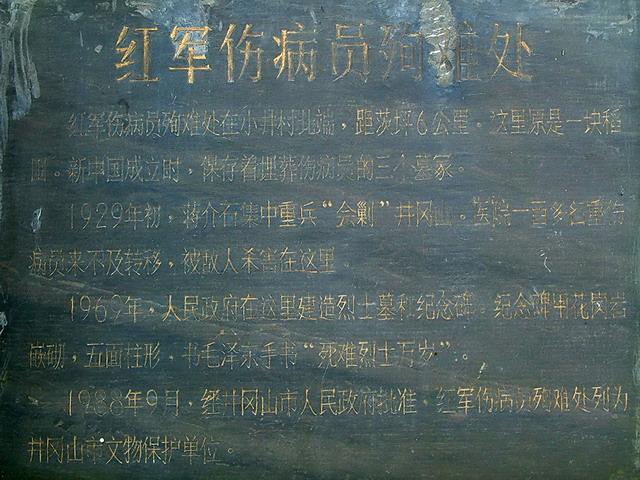 红军伤病员殉难处
红军伤病员殉难处在小井村北端，距茨坪6公里。这里原是一块稻
田。新中国成立时，保存着埋葬伤病员的三个墓冢。
1929年初，蒋介石集中重兵“会剿”井冈山。医院一百多名重伤
病员来不及转移，被敌人杀害在这里
1969年，人民政府在这里建造烈士墓和纪念碑。纪念碑用花岗岩
嵌砌，五面柱形，书毛泽东手书“死难烈士万岁”。
1988年9月，经井冈山市人民政府批准，红军伤病员死难处列为
井冈山市文物保护单位。